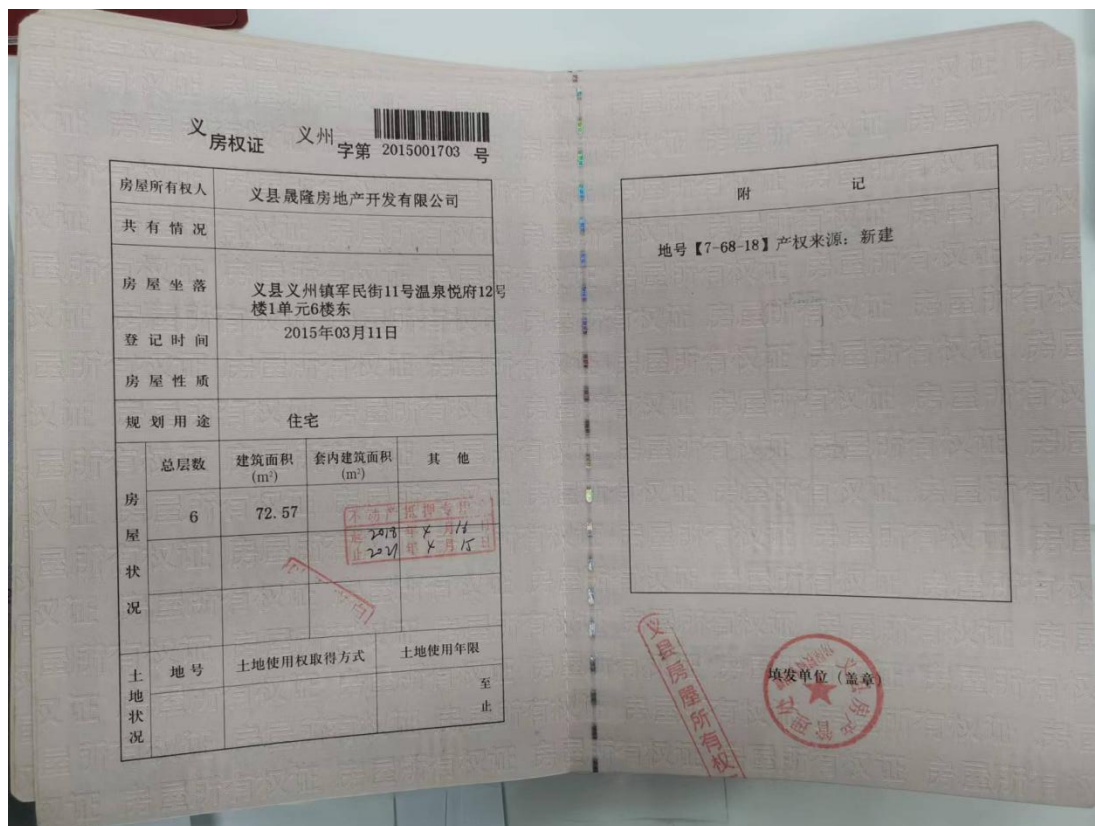 义房权证 义州字第 2015001703 号
房屋所有权人 义县晟隆房地产开发有限公司
共有情况
房屋坐落 义县义州镇军民街11号温泉悦府12号
楼1单元6楼东
登记时间 2015年03月11日
房屋性质
规划用途 住宅
房屋状况
总层数 建筑面积(m²) 套内建筑面积(m²) 其他
6 72.57
不动产抵押专用
起 2018 年 4 月 16 日
止 2021 年 4 月 15 日
土地状况
地号 土地使用权取得方式 土地使用年限
至
止
附记
地号【7-68-18】产权来源：新建
义县房屋所有权
填发单位（盖章）
义县房产管理处